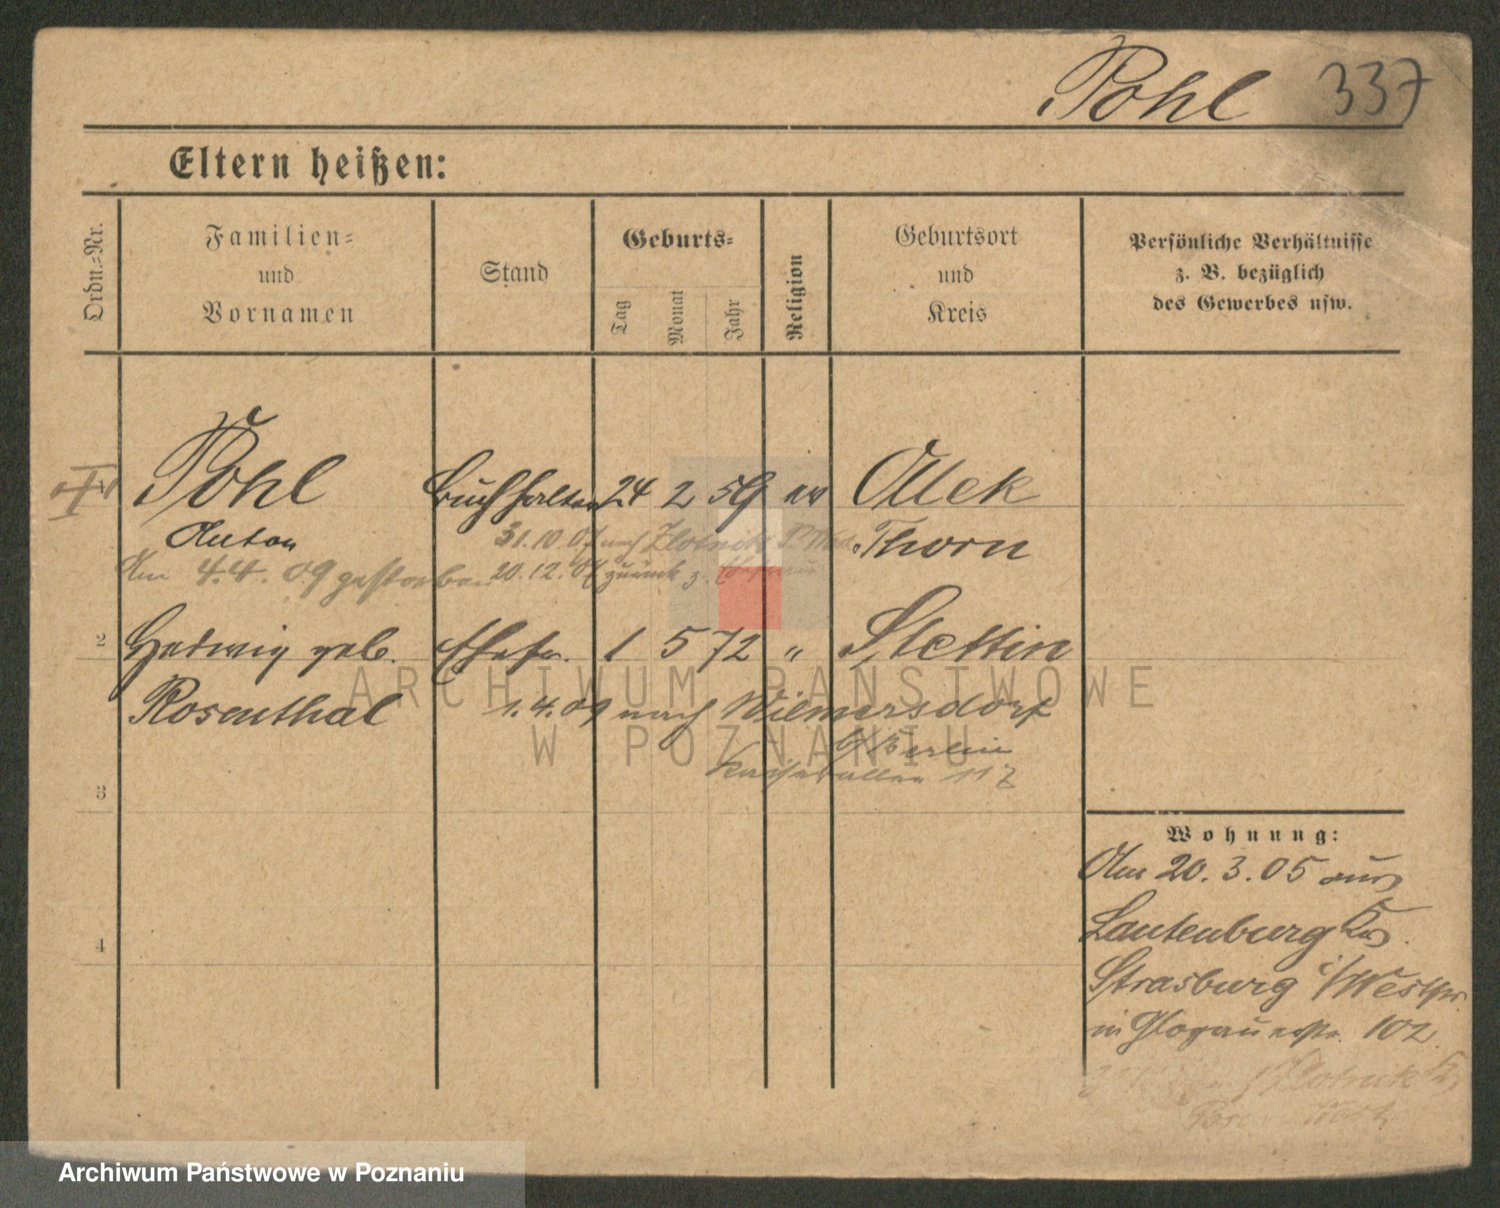 Pohl 337
Eltern heißen:
Ordn.-Nr.
Familien-
und
Vornamen
Stand
Geburts-
Tag
Monat
Jahr
Religion
Geburtsort
und
Kreis
Persönliche Verhältnisse
z. B. bezüglich
des Gewerbes usw.
Pohl Buchhalter 24 2 59 ev Ollek
Anton Thorn
31.10.07 nach Zlotnik
Am 4.4.09 gestorben 20.12.07 zurück
2 Hedwig geb. Ehefr. 1 5 72 " Stettin
Rosenthal 1.4.09 nach Wilmersdorf
b/Berlin
Kaiserallee
3
4
Wohnung:
Am 20.3.05 aus
Lautenburg Krs.
Strasburg i/Westpr.
in Glogauerstr. 102.
Zlotnik
ARCHIWUM PAŃSTWOWE
W POZNANIU
Archiwum Państwowe w Poznaniu